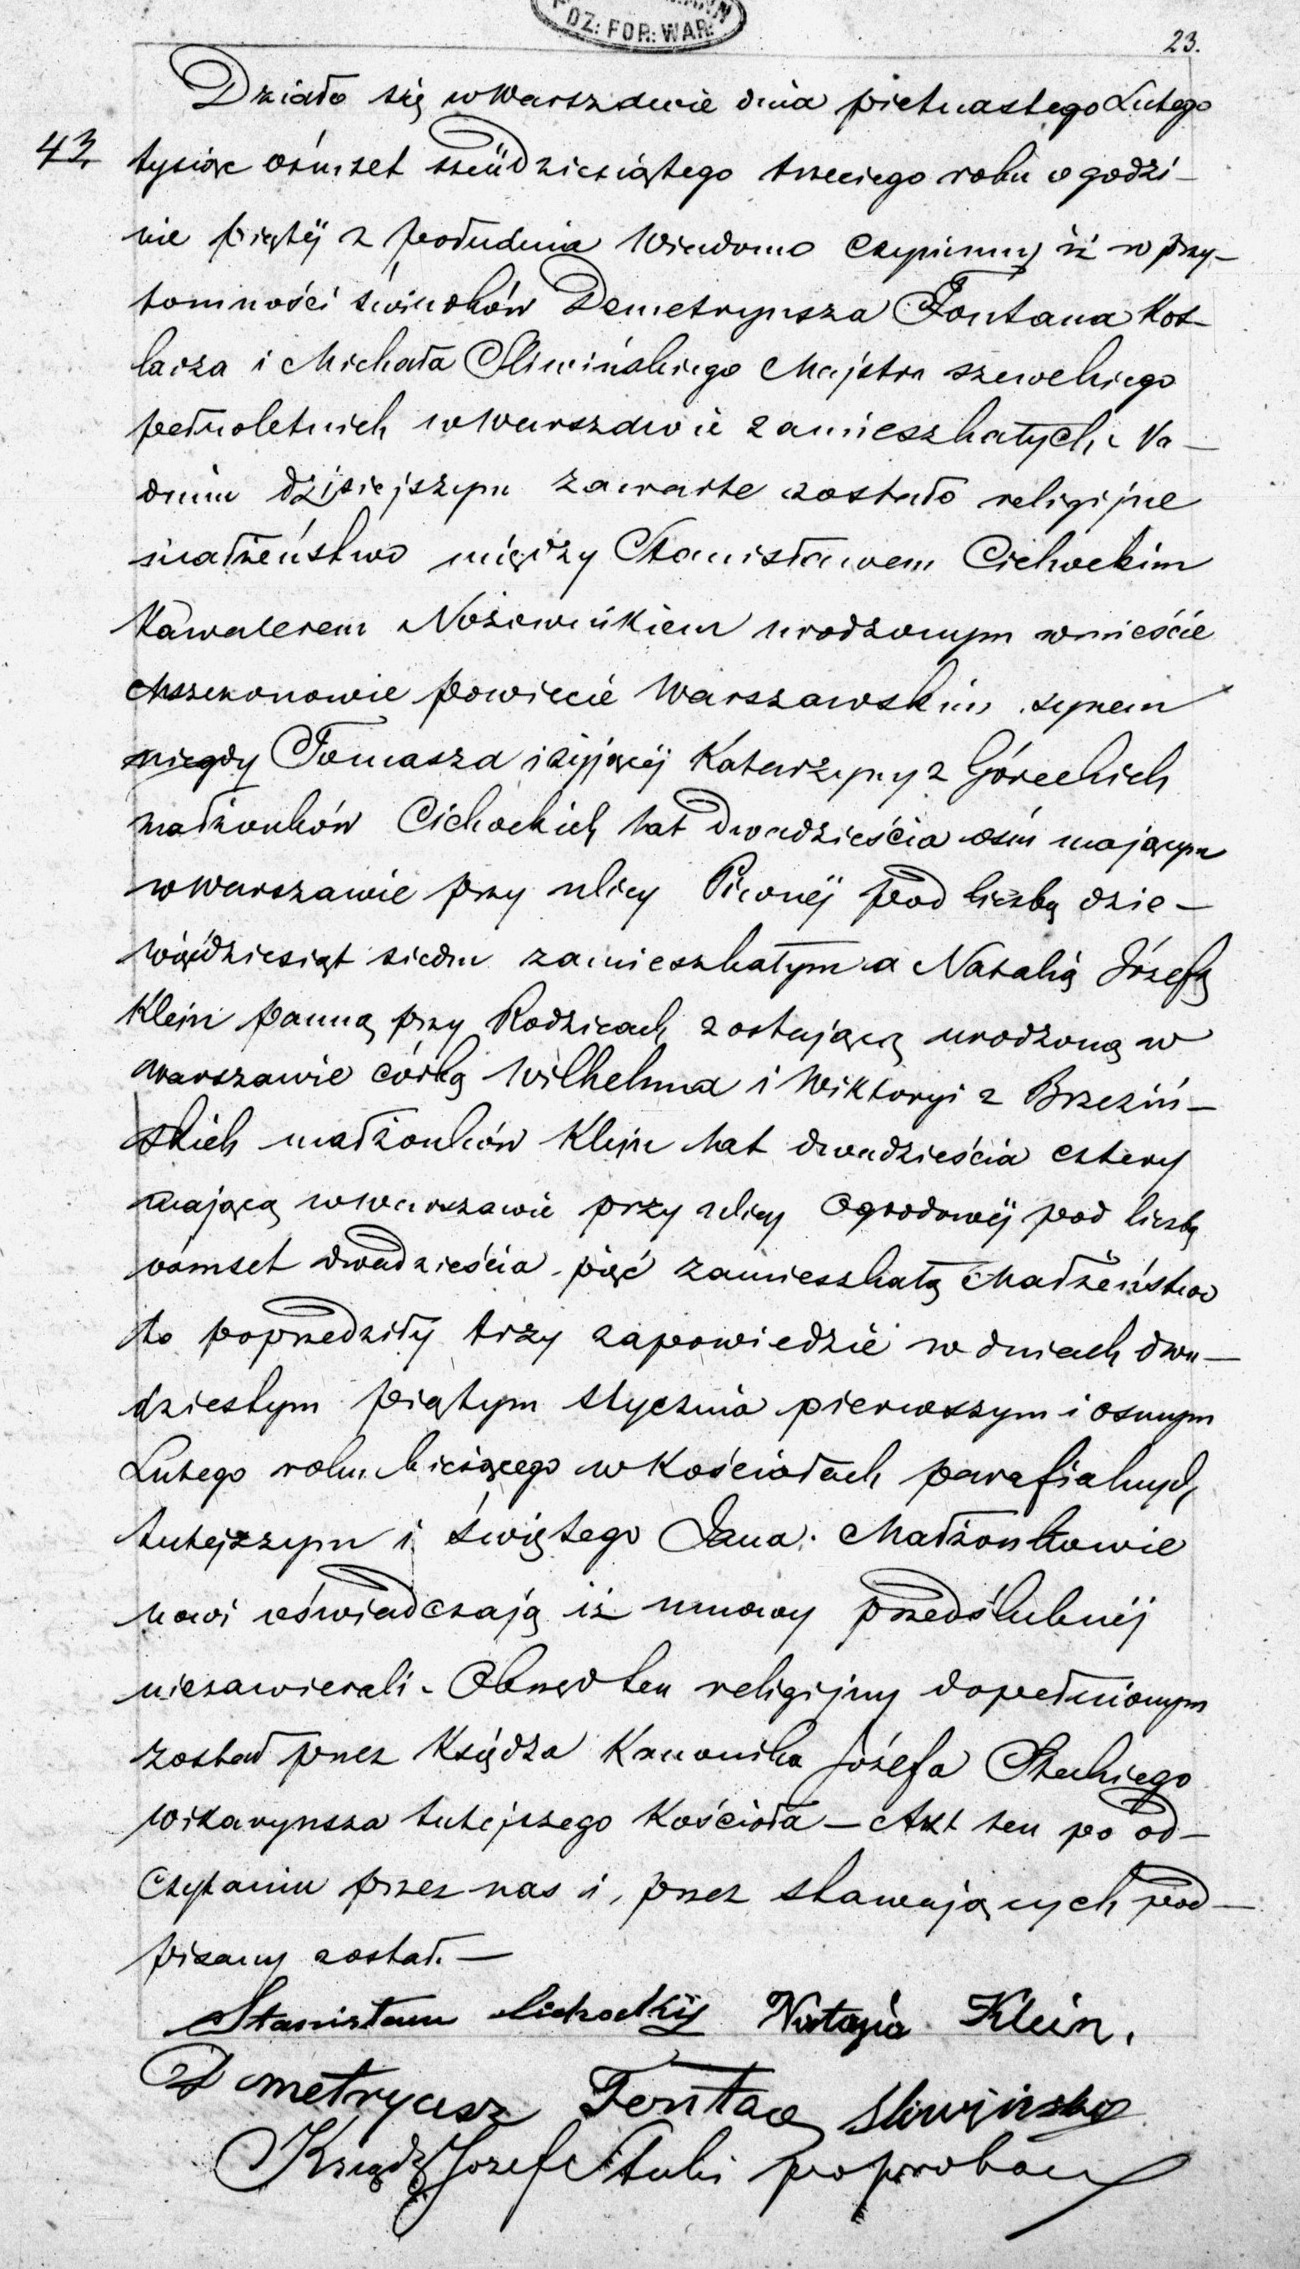 POZ: FOR: WAR:
23.
Działo się w Warszawie dnia piętnastego Lutego
43. tysiąc ośmset sześćdziesiątego trzeciego roku o godzi-
nie piątéj z południa Wiadomo czynimy iż w przy-
tomności świadków Demetryusza Fontana Kot-
larza i Michała Sliwińskiego Majstra szewckiego
pełnoletnich w Warszawie zamieszkałych. Na-
dniu dzisiejszym zawarte zostało religijne
małżeństwo między Stanisławem Cichockim
Kawalerem Nożownikiem urodzonym w mieście
Mszczonowie powiecie Warszawskim synem
niegdy Tomasza i żyjącéj Katarzyny z Góreckich
małżonków Cichockich lat dwadzieścia ośm mającym
w Warszawie przy ulicy Piwnéj pod liczbą dzie-
więćdziesiąt siedm zamieszkałym a Natalią Józefą
Klejn panną przy Rodzicach zostającą urodzoną w
Warszawie córką Wilhelma i Wiktoryi z Brzeziń-
skich małżonków Klejn lat dwadzieścia cztery
mającą w Warszawie przy ulicy Ogrodowéj pod liczbą
ośmset dwadzieścia pięć zamieszkałą Małżeństwo
to poprzedziły trzy zapowiedzie w dniach dwu-
dziestym piątym Stycznia pierwszym i osmym
Lutego roku bieżącego w Kościołach parafialnych
tutejszym i świętego Jana. Małżonkowie
nowi oświadczają iż umowy przedślubnéj
niezawierali. Obrzęd ten religijny dopełnionym
został przez Księdza Kanonika Józefa Steckiego
wikaryusza tutejszego Kościoła – Akt ten po od-
czytaniu przez nas i przez stawających pod-
pisany został. –
Stanisław Cichockij Natalja Klein.
Demetryusz Fontana Sliwiński
Ksiądz Józef Stecki